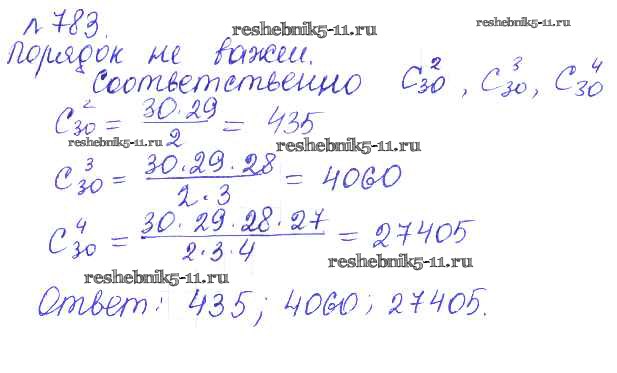 № 783. reshebnik5-11.ru reshebnik5-11.ru
Порядок не важен.
Соответственно C₃₀², C₃₀³, C₃₀⁴
C₃₀² = 30·29 / 2 = 435
reshebnik5-11.ru reshebnik5-11.ru
C₃₀³ = 30·29·28 / 2·3 = 4060
C₃₀⁴ = 30·29·28·27 / 2·3·4 = 27405
reshebnik5-11.ru reshebnik5-11.ru
Ответ: 435; 4060; 27405.